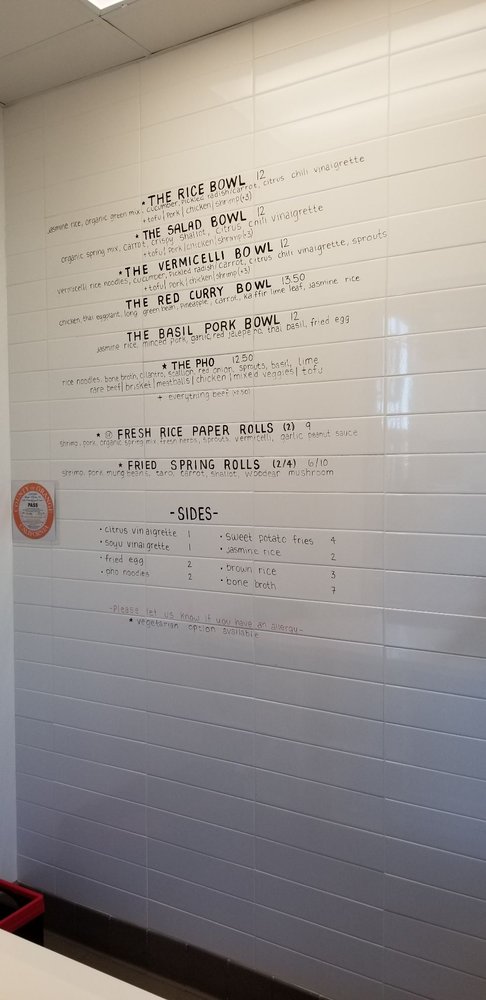 ★ THE RICE BOWL 12
jasmine rice, organic green mix, cucumber, pickled radish/carrot, citrus chili vinaigrette
+ tofu | pork | chicken | shrimp(+3)
★ THE SALAD BOWL 12
organic spring mix, carrot, crispy shallot, citrus chili vinaigrette
+ tofu | pork | chicken | shrimp(+3)
★ THE VERMICELLI BOWL 12
vermicelli rice noodles, cucumber, pickled radish/carrot, citrus chili vinaigrette, sprouts
+ tofu | pork | chicken | shrimp(+3)
THE RED CURRY BOWL 13.50
chicken, thai eggplant, long green bean, pineapple, carrot, kaffir lime leaf, jasmine rice
THE BASIL PORK BOWL 12
jasmine rice, minced pork, garlic, red jalepeno, thai basil, fried egg
★ THE PHO 12.50
rice noodles, bone broth, cilantro, scallion, red onion, sprouts, basil, lime
rare beef | brisket | meatballs | chicken | mixed veggies | tofu
+ everything beef
★ FRESH RICE PAPER ROLLS (2) 9
shrimp, pork, organic spring mix, fresh herbs, sprouts, vermicelli, garlic peanut sauce
★ FRIED SPRING ROLLS (2/4) 6/10
shrimp, pork, mung beans, taro, carrot, shallot, woodear mushroom
-SIDES-
• citrus vinaigrette 1
• soyu vinaigrette 1
• fried egg 2
• pho noodles 2
• sweet potato fries 4
• jasmine rice 2
• brown rice 3
• bone broth 7
-Please let us know if you have an allergy-
★ vegetarian option available
PASS